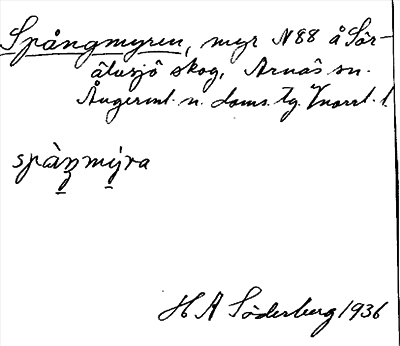 Spångmyren, myr N88 å Sör-
älusjö skog, Arnäs sn.
Ångerml. n. doms. tg. Vnorrl. l.
spàŋmýra
H A Söderberg 1936